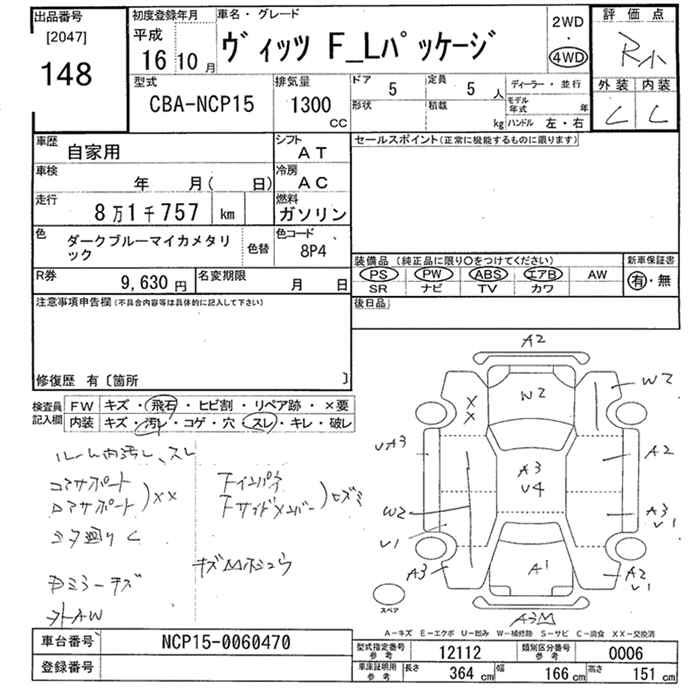 出品番号
[2047]
148
初度登録年月
平成
16年10月
車名・グレード
ヴィッツ F_Lパッケージ
2WD
・
4WD
評価点
R小
外装 内装
C C
型式
CBA-NCP15
排気量
1300
CC
ドア
5
定員
5人
形状
積載
kg
ディーラー・並行
モデル年式 年
ハンドル 左・右
車歴
自家用
シフト
AT
車検
年 月( 日)
冷房
AC
走行
8万1千757 km
燃料
ガソリン
色
ダークブルーマイカメタリック
色替
色コード
8P4
R券
9,630円
名変期限
月 日
セールスポイント(正常に機能するものに限ります)
装備品(純正品に限り○をつけてください)
PS PW ABS エアB AW
SR ナビ TV カワ
新車保証書
有・無
後日品
注意事項申告欄(不具合内容等は具体的に記入して下さい)
修復歴 有〔箇所 〕
検査員記入欄
FW キズ・飛石・ヒビ割・リペア跡・×要
内装 キズ・汚レ・コゲ・穴・スレ・キレ・破レ
ルーム内汚レ、スレ
コアサポート
ロアサポート
)XX
Fインパネ
Fサイドメンバー
)ヒズミ
ミラーキズ
外AW
A2
W2
W2
X
X
UA3
A2
A3
U4
W2
U1
A3
U1
A3
A1
A2
U1
スペア
A3M
A-キズ E-エクボ U-凹み W-補修跡 S-サビ C-腐食 XX-交換済
車台番号
NCP15-0060470
登録番号
型式指定番号
参考
12112
類別区分番号
参考
0006
車庫証明用
参考
長さ 364 cm
幅 166 cm
高さ 151 cm